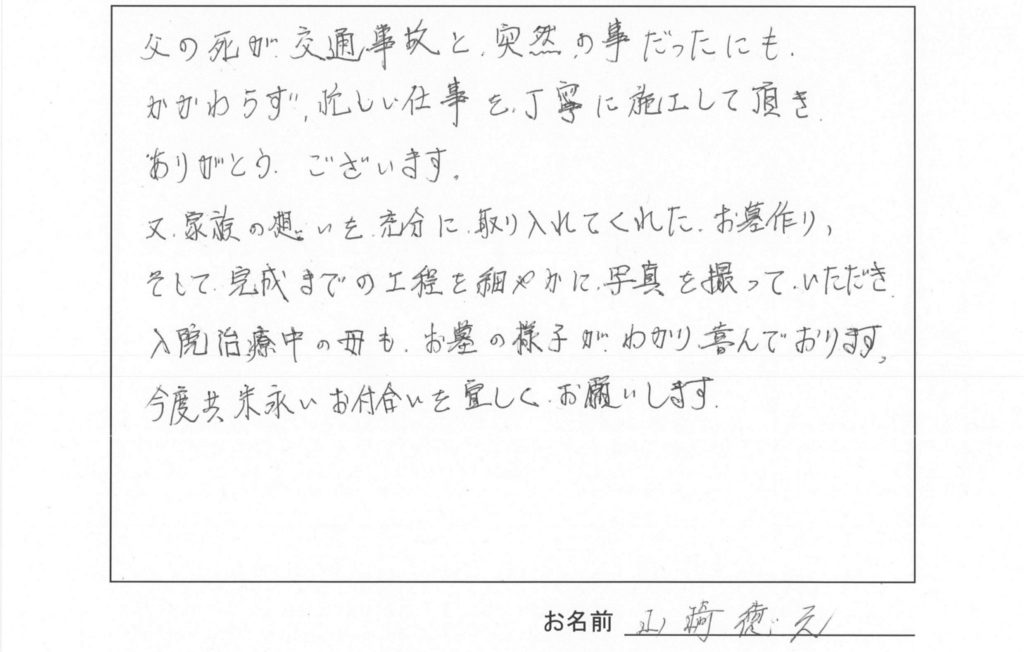 父の死が、交通事故と、突然の事だったにも、
かかわらず、忙しい仕事を、丁寧に施工して頂き、
ありがとう、ございます。
又、家族の想いを、充分に、取り入れてくれた、お墓作り、
そして、完成までの工程を細やかに、写真を撮って、いただき、
入院治療中の母も、お墓の様子が、わかり、喜んでおります。
今度共末永いお付合いを宜しく、お願いします。
お名前 山崎 徳